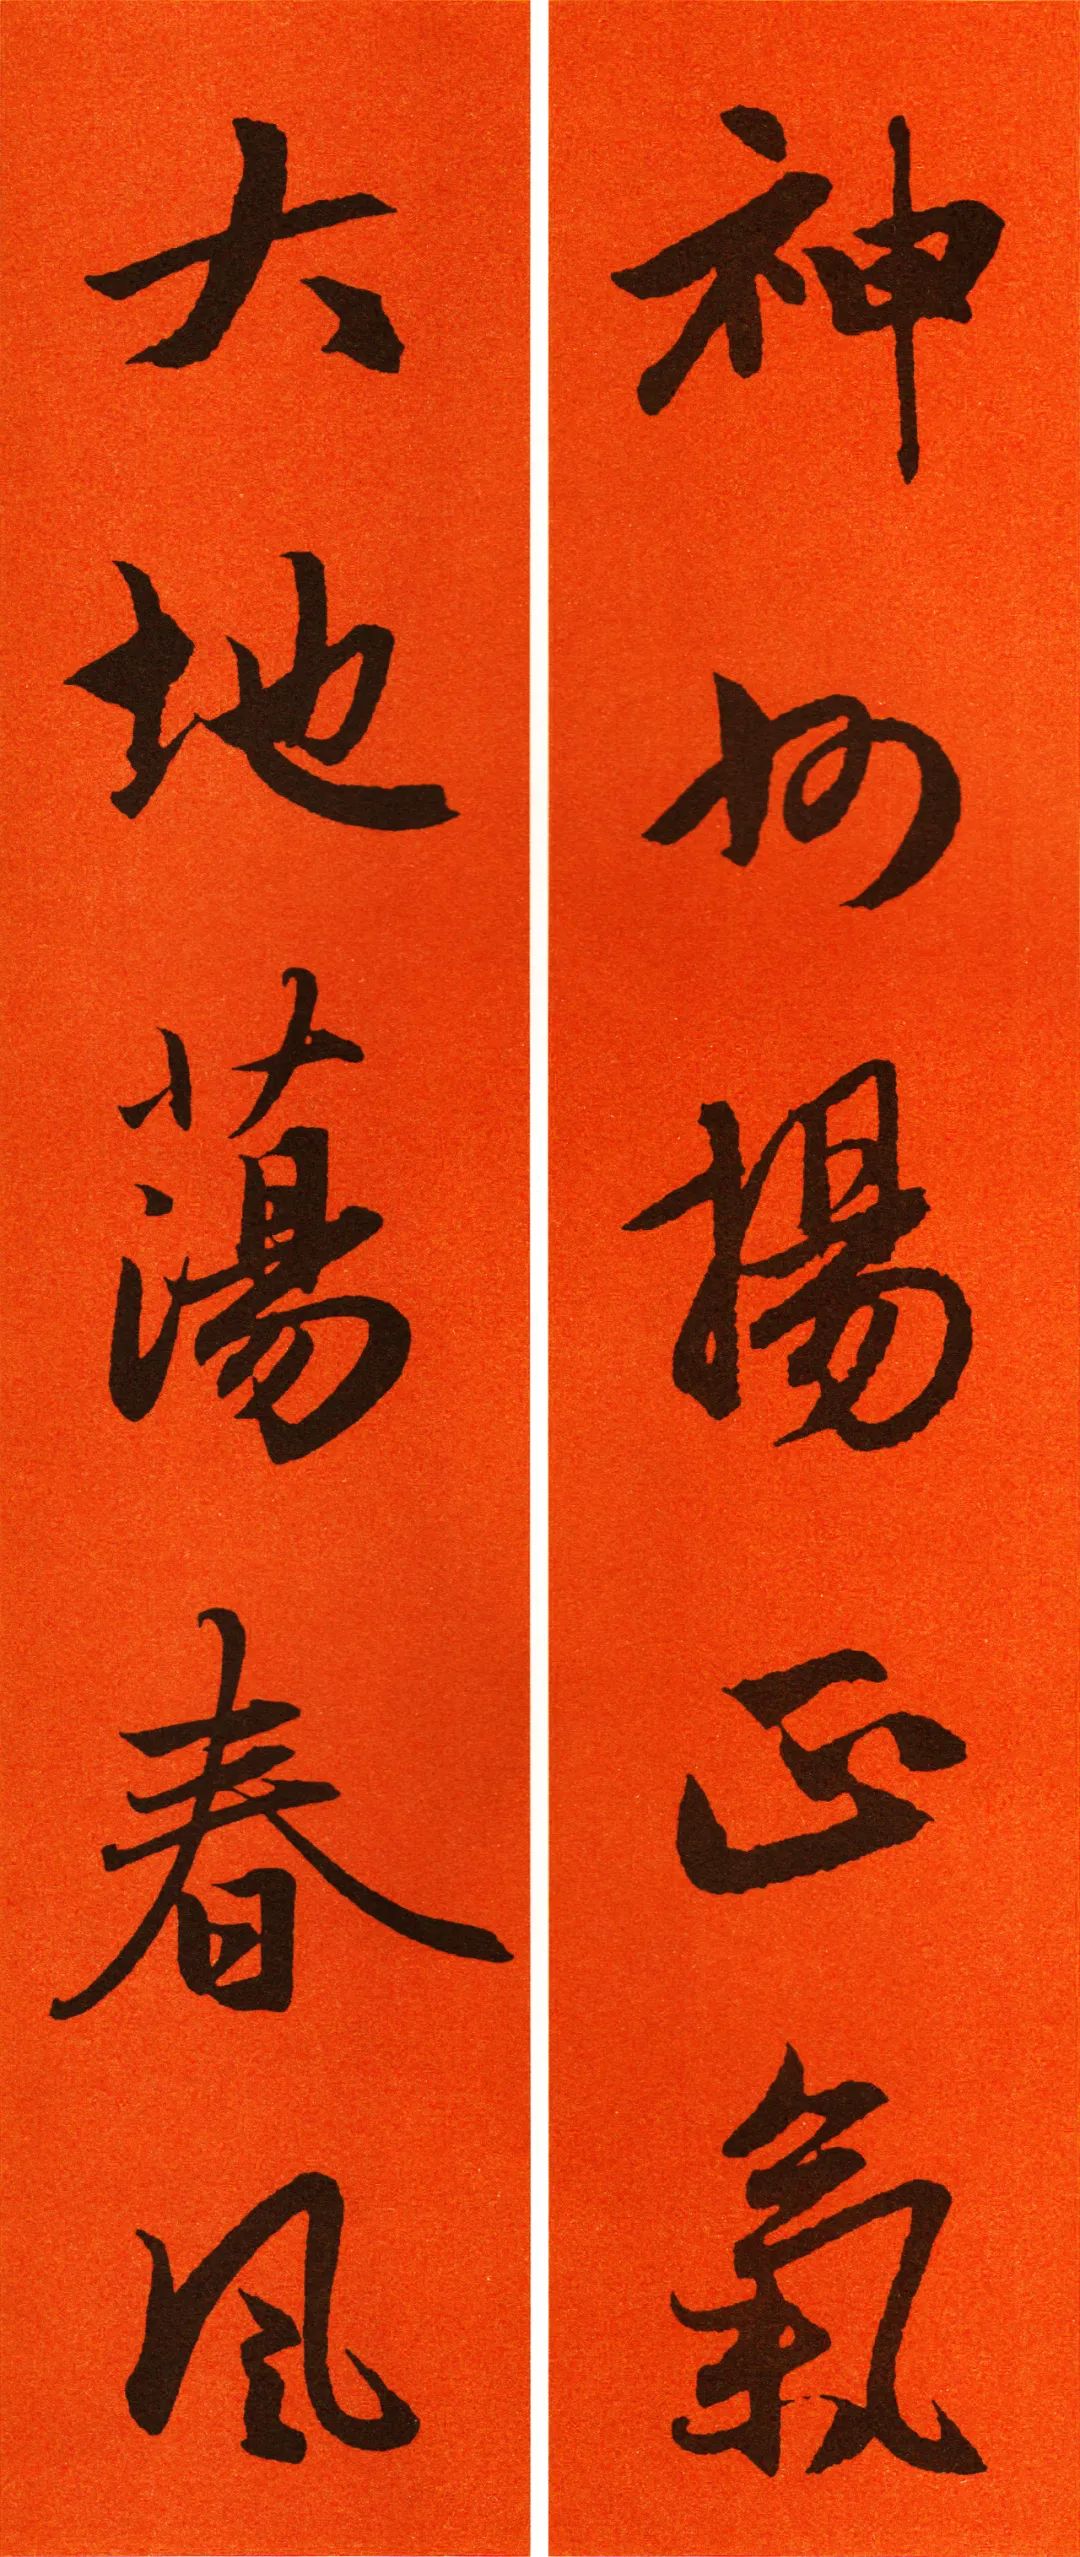 神州揚正氣
大地蕩春風